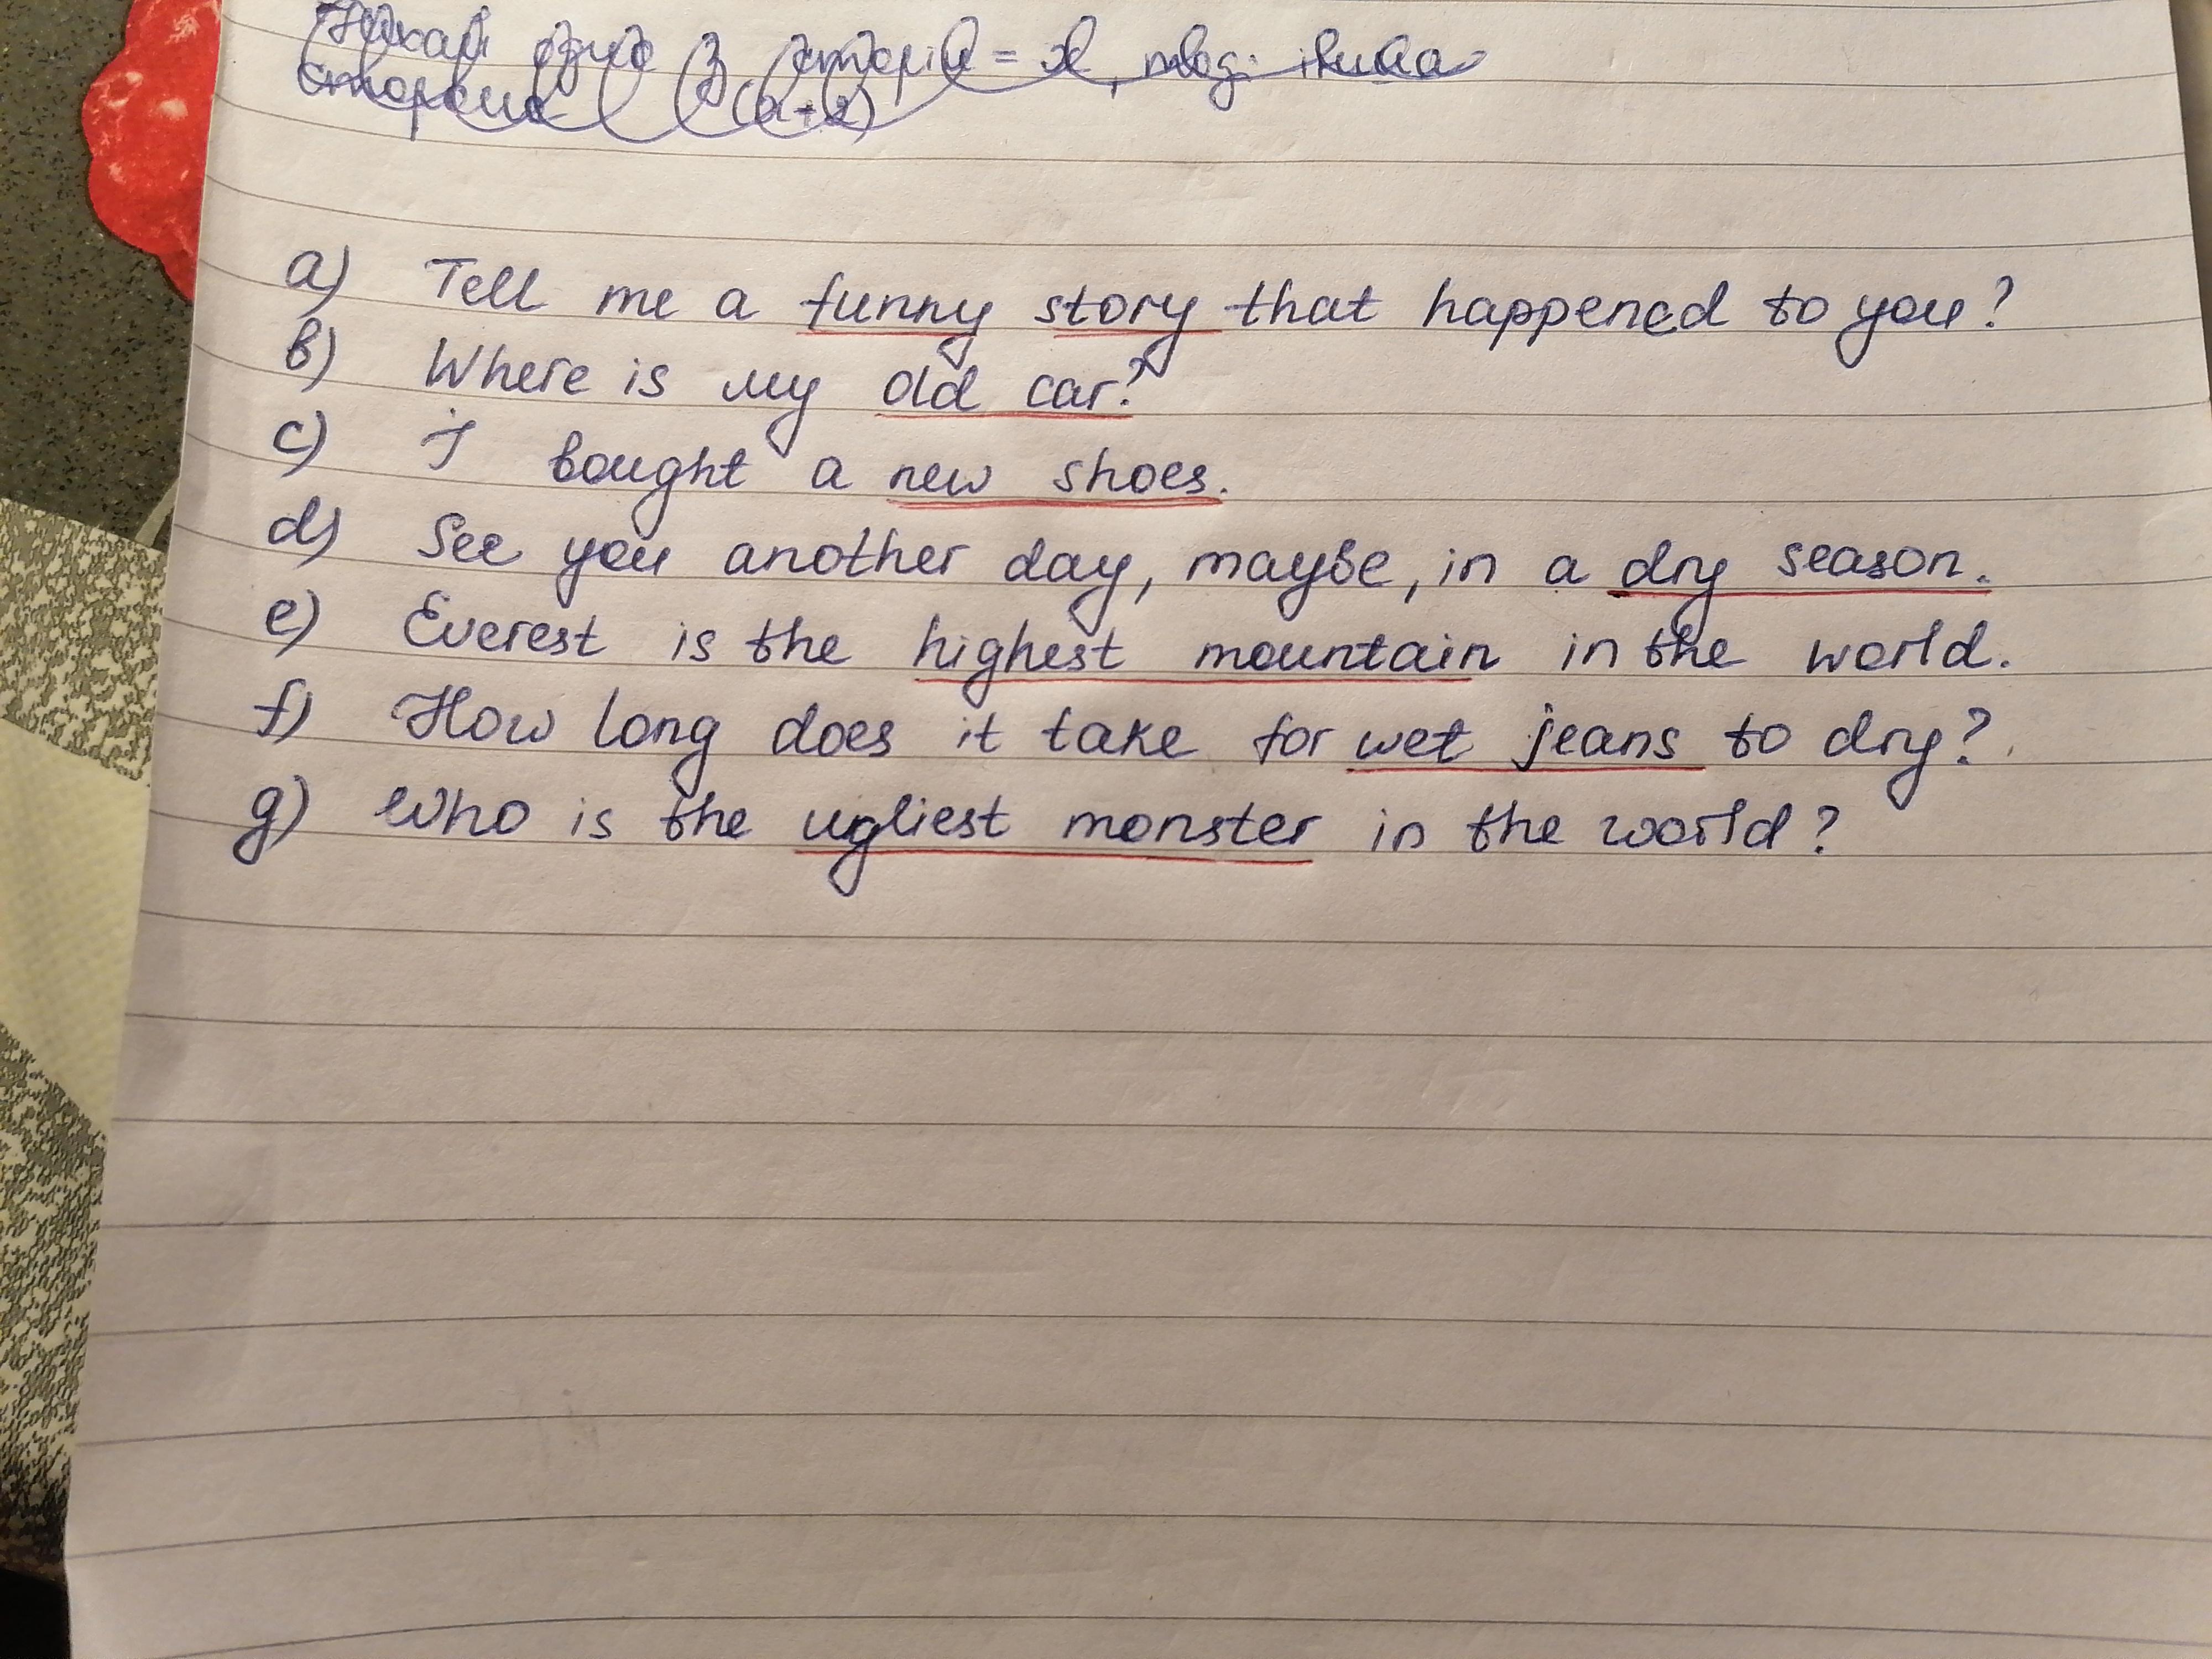 Нехай одна з сторін = х, тоді інша
сторона (х+2)
a) Tell me a funny story that happened to you?
b) Where is my old car?
c) I bought a new shoes.
d) See you another day, maybe, in a dry season.
e) Everest is the highest mountain in the world.
f) How long does it take for wet jeans to dry?
g) Who is the ugliest monster in the world?